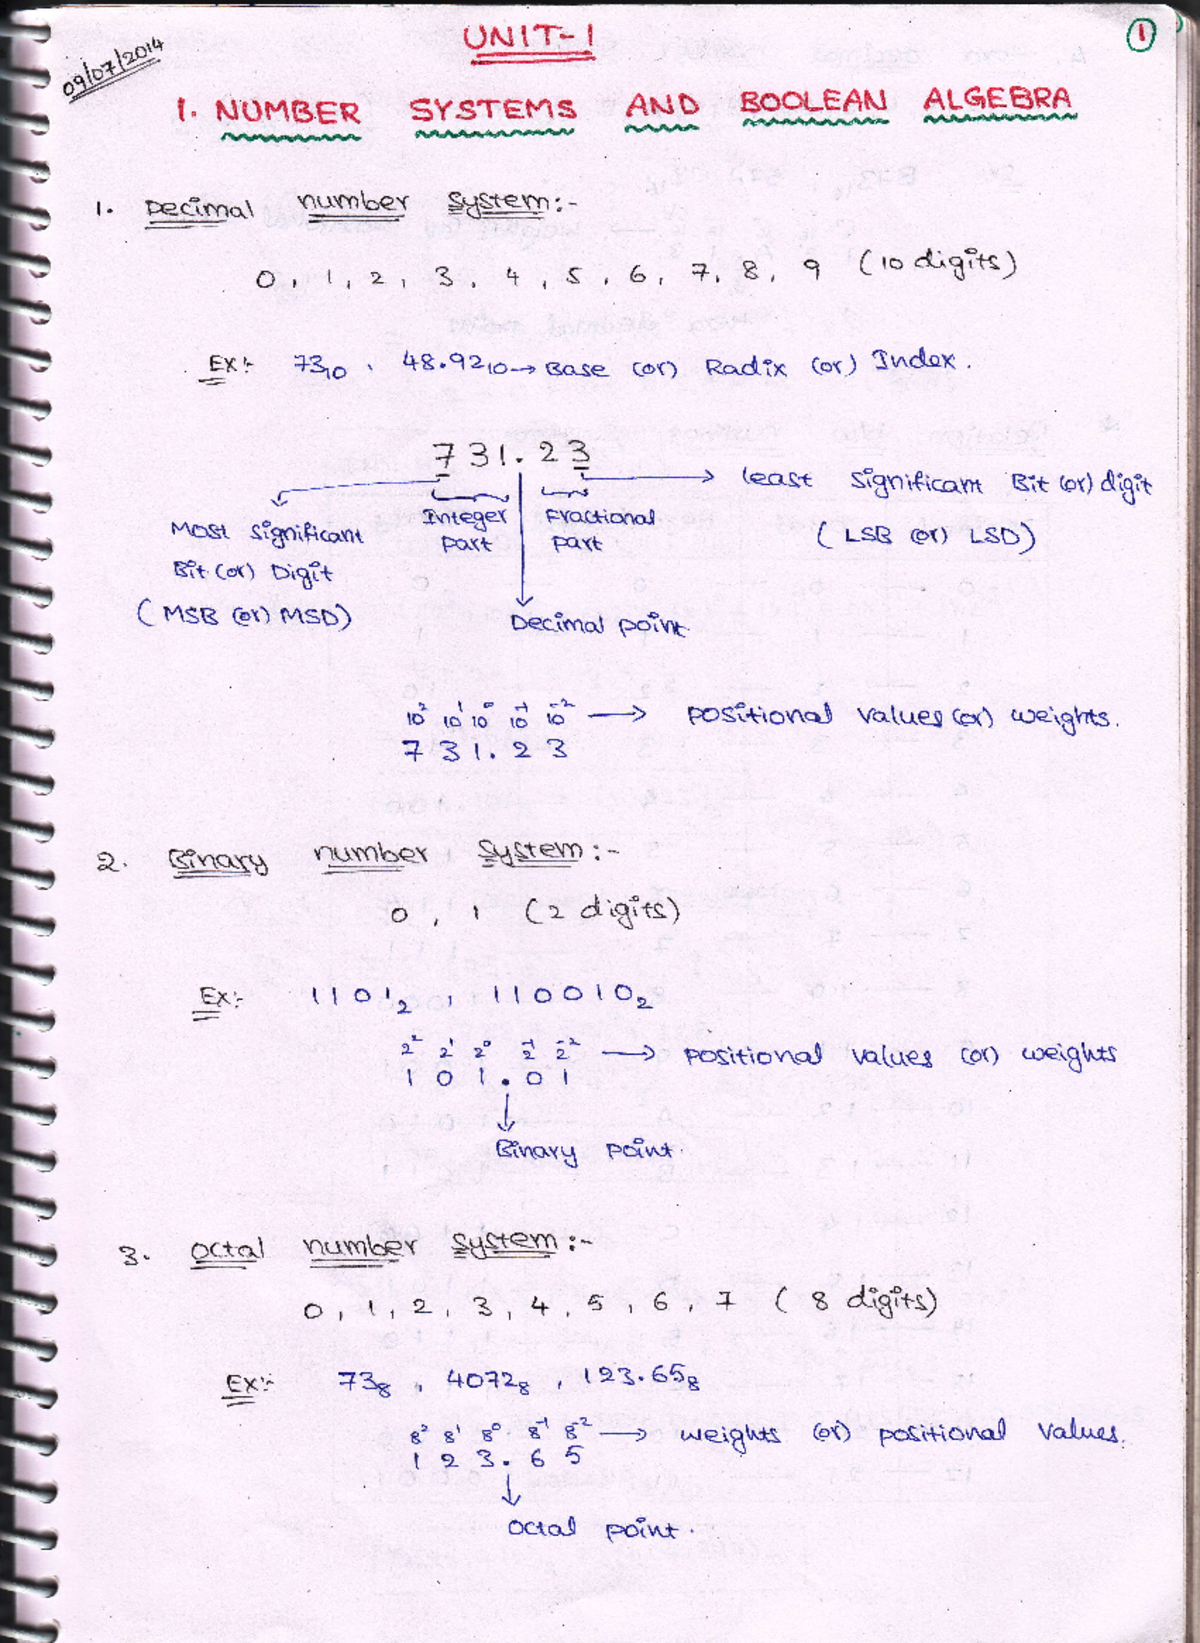 09/07/2014
UNIT-1
1
1. NUMBER SYSTEMS AND BOOLEAN ALGEBRA
1. Decimal number system:-
0, 1, 2, 3, 4, 5, 6, 7, 8, 9 (10 digits)
Ex:- 73₁₀, 48.92₁₀→ Base (or) Radix (or) Index.
731.23 → least significant Bit (or) digit
(LSB (or) LSD)
Integer part
Fractional part
Most significant
Bit (or) Digit
(MSB (or) MSD)
Decimal point
10² 10¹ 10⁰ 10⁻¹ 10⁻² → positional values (or) weights.
7 3 1 . 2 3
2. Binary number system:-
0, 1 (2 digits)
Ex:- 1101₂, 110010₂
2² 2¹ 2⁰ 2⁻¹ 2⁻² → positional values (or) weights
1 0 1 . 0 1
Binary point.
3. Octal number system:-
0, 1, 2, 3, 4, 5, 6, 7 (8 digits)
Ex:- 73₈, 4072₈, 123.65₈
8² 8¹ 8⁰ 8⁻¹ 8⁻² → weights (or) positional values.
1 2 3 . 6 5
octal point.